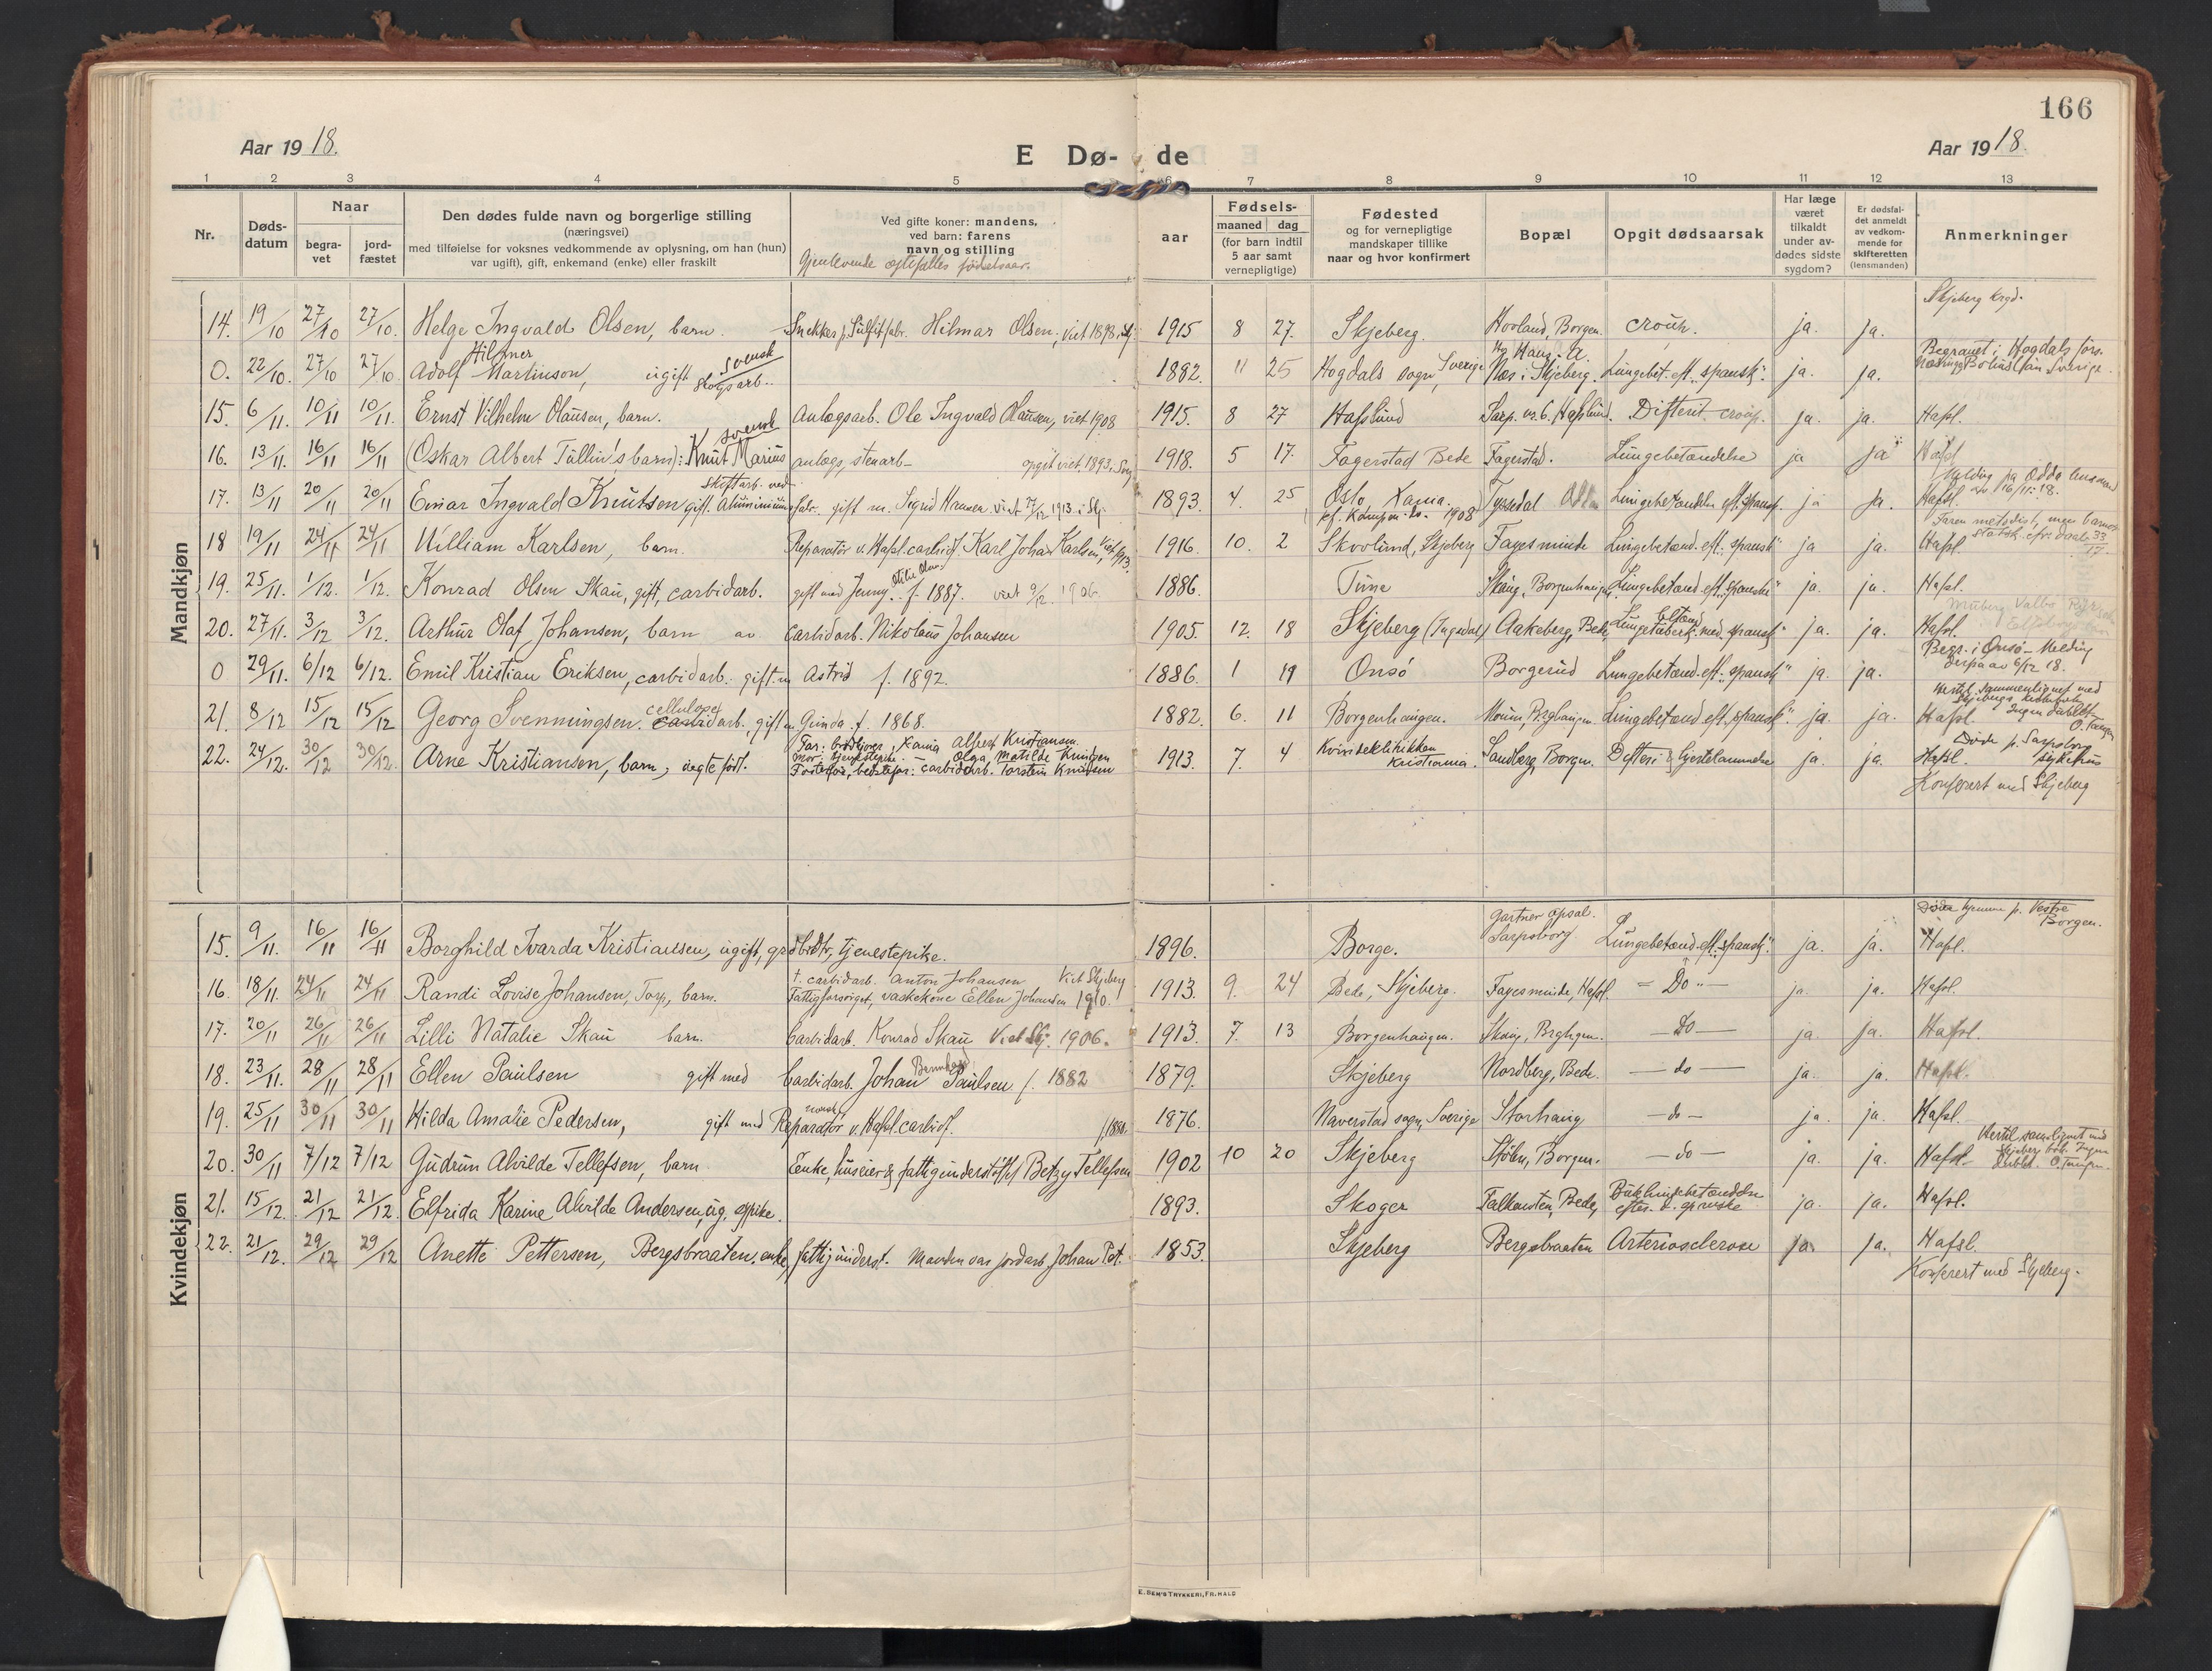 166
Aar 1918.
E Dø- de
Aar 1918.
1 2 3 4 5 6 7 8 9 10 11 12 13
Nr.
Døds-
datum
Naar
begra-
vet
jord-
fæstet
Den dødes fulde navn og borgerlige stilling
(næringsvei)
med tilføielse for voksnes vedkommende av oplysning, om han (hun)
var ugift), gift, enkemand (enke) eller fraskilt
Ved gifte koner: mandens,
ved barn: farens
navn og stilling
Gjenlevende egtefælles fødselsaar.
aar
Fødsels-
maaned dag
(for barn indtil
5 aar samt
vernepligtige)
Fødested
og for vernepligtige
mandskaper tillike
naar og hvor konfirmert
Bopæl
Opgit dødsaarsak
Har læge
været
tilkaldt
under av-
dødes sidste
sygdom?
Er dødsfal-
det anmeldt
av vedkom-
mende for
skifteretten
(lensmanden)
Anmerkninger
Mandkjøn
Skjeberg krgd.
14. 19/10 27/10 27/10. Helge Ingvald Olsen, barn. Snekker p. Sulfitfabr. Hilmar Olsen, viet 1898 i Skj. 1915 8 27. Skjeberg. Hovland, Borgen. croup. ja. ja.
Hilmer svensk
Begravet i Hogdals førs.
0. 22/10. 27/10 27/10 Adolf Martinson, ugift skogsarb. 1882. 11 25 Hogdals sogn, Sverige Næs i Skjeberg. Lungebet. eft. "spansk". ja. ja. Bohuslän Sverige.
15. 6/11. 10/11 10/11. Ernst Vilhelm Olausen, barn. Anlægsarb. Ole Ingvald Olausen, viet 1908 1915. 8 27 Hafslund Sarp. vs. 6. Hafslund. Difterit-croup. ja. ja. Hafsl.
svensk
16. 13/11. 16/11 16/11 (Oskar Albert Tullin's barn): Knut Marius anlægs, stenarb- opgit viet 1893, 1918. 5 17. Fagerstad Bede Fagerstad. Lungebetændelse ja ja Hafsl
skiftarb. ved
Melding fra Odda
17. 13/11 20/11 20/11 Einar Ingvald Knutsen gift. Aluminiumsfabr. gift m. Sigrid Hansen viet 27/12 1913 i Skj. 1893. 4. 25 Oslo, Xania. Tyssedal Odda Lungebetændelse eft. spansk. ja ja. Hafsl. 16/11-18.
1908
Faren metodist, men barnet
18 19/11 24/11 24/11 William Karlsen, barn. Reparatør v. Hafsl. carbidf. Karl Johan Karlsen, Viet 1913. 1916. 10. 2 Skovlund, Skjeberg Fagesminde Lungebetænd. eft. "spansk" ja ja. Hafsl.
19. 25/11. 1/12. 1/12. Konrad Olsen Skau, gift, carbidarb. gift med Jenny f. 1887. viet 9/12. 1906. 1886. Tune Skaug, Borgenhaugen Lungebetænd. eft. "spanske" ja. ja. Hafsl.
20. 27/11. 3/12 3/12. Arthur Olaf Johansen, barn av Carbidarb. Nikolaus Johansen 1905. 12. 18 Skjeberg (Ingedal) Aakeberg, Bede med "spansk" ja. ja. Hafsl.
Begr. i Onsø - Melding
0 29/11. 6/12 6/12. Emil Kristian Eriksen, carbidarb. gift m Astrid f. 1892. 1886. 1 19 Onsø Borgerud Lungebetænd. eft. "spansk" ja. ja. derpaa av 6/12 18.
cellulose
Hertil sammenlignet med
21. 8/12 15/12 15/12 Georg Svenningsen. carbidarb., gift m Gunda f. 1868. 1882. 6. 11 Borgenhaugen. Moum, Brghaugen. Lungebetænd eft. "spansk". ja. ja. Hafsl.
Far: brødkjører, Xania Alfred Kristiansen.
Mor: tjenestepike. - Olga, Matilde Knudsen
Døde p. Sarpsborg
22. 24/12. 30/12 30/12. Arne Kristiansen, barn, uegte født. Fosterfar, bedstefar: carbidarb. Torstein Knudsen 1913. 7. 4 Kvindeklinikken Kristiania. Sandberg, Borgen. Difteri & Hjertelammelse ja. ja. Hafsl. sykehus
Konferert med Skjeberg
Kvindekjøn
Gartner Opsal.
Vestre Borgen.
15. 9/11. 16/11 16/11 Borghild Ivarda Kristiansen, ugift, grdbrdtr, tjenestepike. 1896. Borge. Sarpsborg Lungebetænd. eft. "spansk". ja. ja. Hafsl.
† carbidarb. Anton Johansen Viet Skjeberg
16. 18/11. 24/11 24/11 Randi Lovise Johansen, Torp, barn. Fattigforsørget, vaskekone Ellen Johansen 1910. 1913. 9. 24 Bede, Skjeberg. Fagesminde, Hafsl. - Do - ja. ja. Hafsl.
17. 20/11 26/11 26/11 Lilli Natalie Skau barn. Carbidarb. Konrad Skau Viet Skj. 1906. 1913. 7. 13 Borgenhaugen. Skaug, Brghgen. - Do - ja. ja. Hafsl.
Bernhard
18. 23/11. 28/11 28/11 Ellen Paulsen gift med Carbidarb. Johan Paulsen f. 1882 1879. Skjeberg Nordberg, Bede. - do - ja. ja. Hafsl.
norsk
19. 25/11 30/11 30/11 Hilda Amalie Pedersen, gift med Reparatør v. Hafsl. carbidf. 1876. Naverstad sogn, Sverige Storhaug - do - ja. ja. Hafsl.
20. 30/11 7/12 7/12 Gudrun Alvilde Tellefsen, barn. Enke, huseier & fattigunderstøttet Betzy Tellefsen 1902 10 20 Skjeberg Stølen, Borgen. - do - ja. ja. Hafsl.
21. 15/12. 21/12 21/12. Elfrida Karine Alvilde Andersen, ug. pike. 1893. Skoger Falkensten, Bede, Bukhindebetændelse efter d. spanske ja. ja. Hafsl.
22. 21/12. 29/12 29/12 Anette Pettersen, Bergsbraaten, enke, fattigunderst. Manden var jordarb. Johan Pet. 1853. Skjeberg Bergsbraaten Arteriosclerose ja. ja. Hafsl.
Konferert med Skjeberg.
E. SEM'S TRYKKERI, FR.HALD